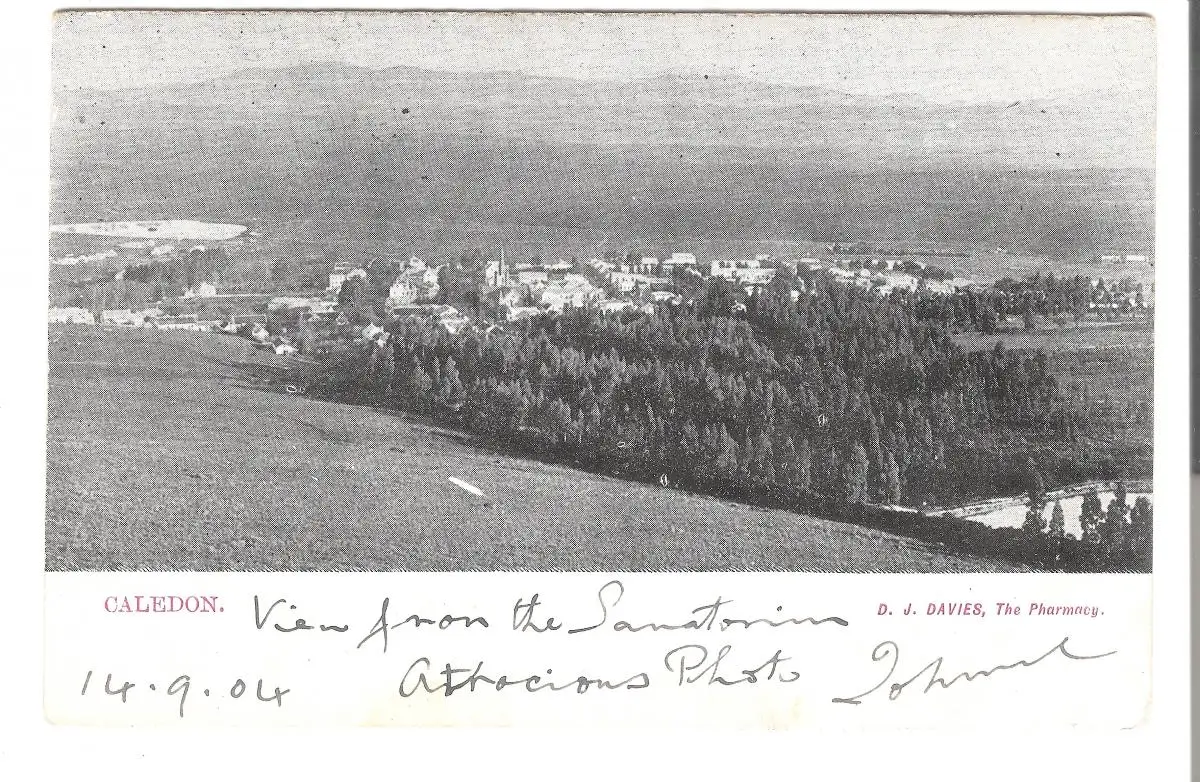 CALEDON. View from the Sanatorium D. J. DAVIES, The Pharmacy.
14.9.04 Attrocious Photo